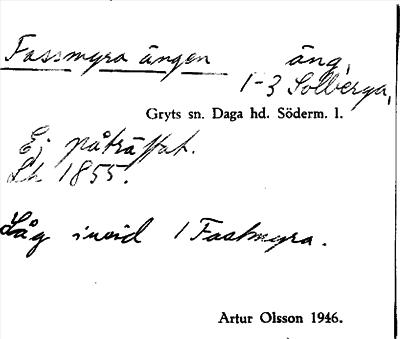 Fassmyra ängen äng,
1-3 Solberga,
Gryts sn. Daga hd. Söderm. l.
Ej påträffat.
Lh 1855.
Låg invid 1 Fastmyra.
Artur Olsson 1946.